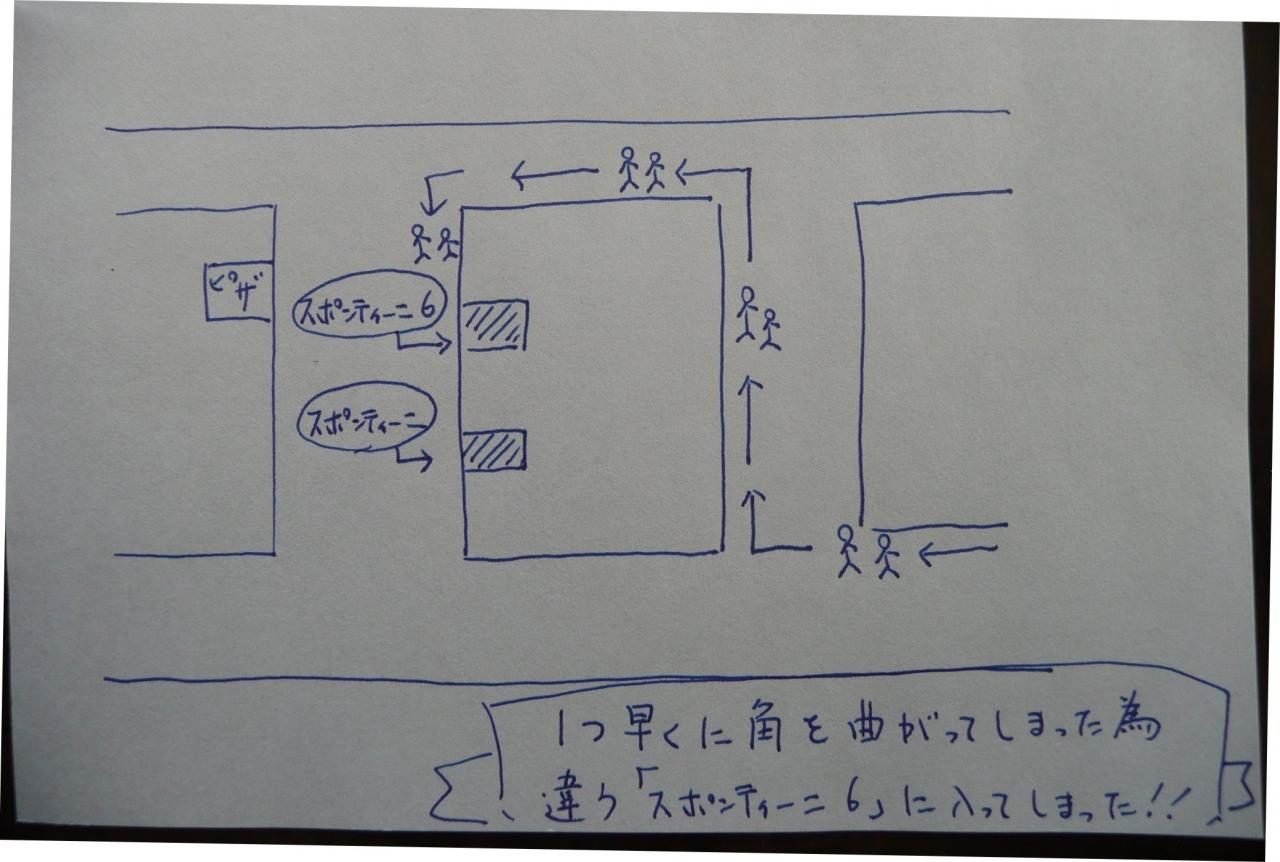 ピザ
スポンティーニ 6
スポンティーニ
1つ早くに角を曲がってしまった為
違う「スポンティーニ 6」に入ってしまった!!